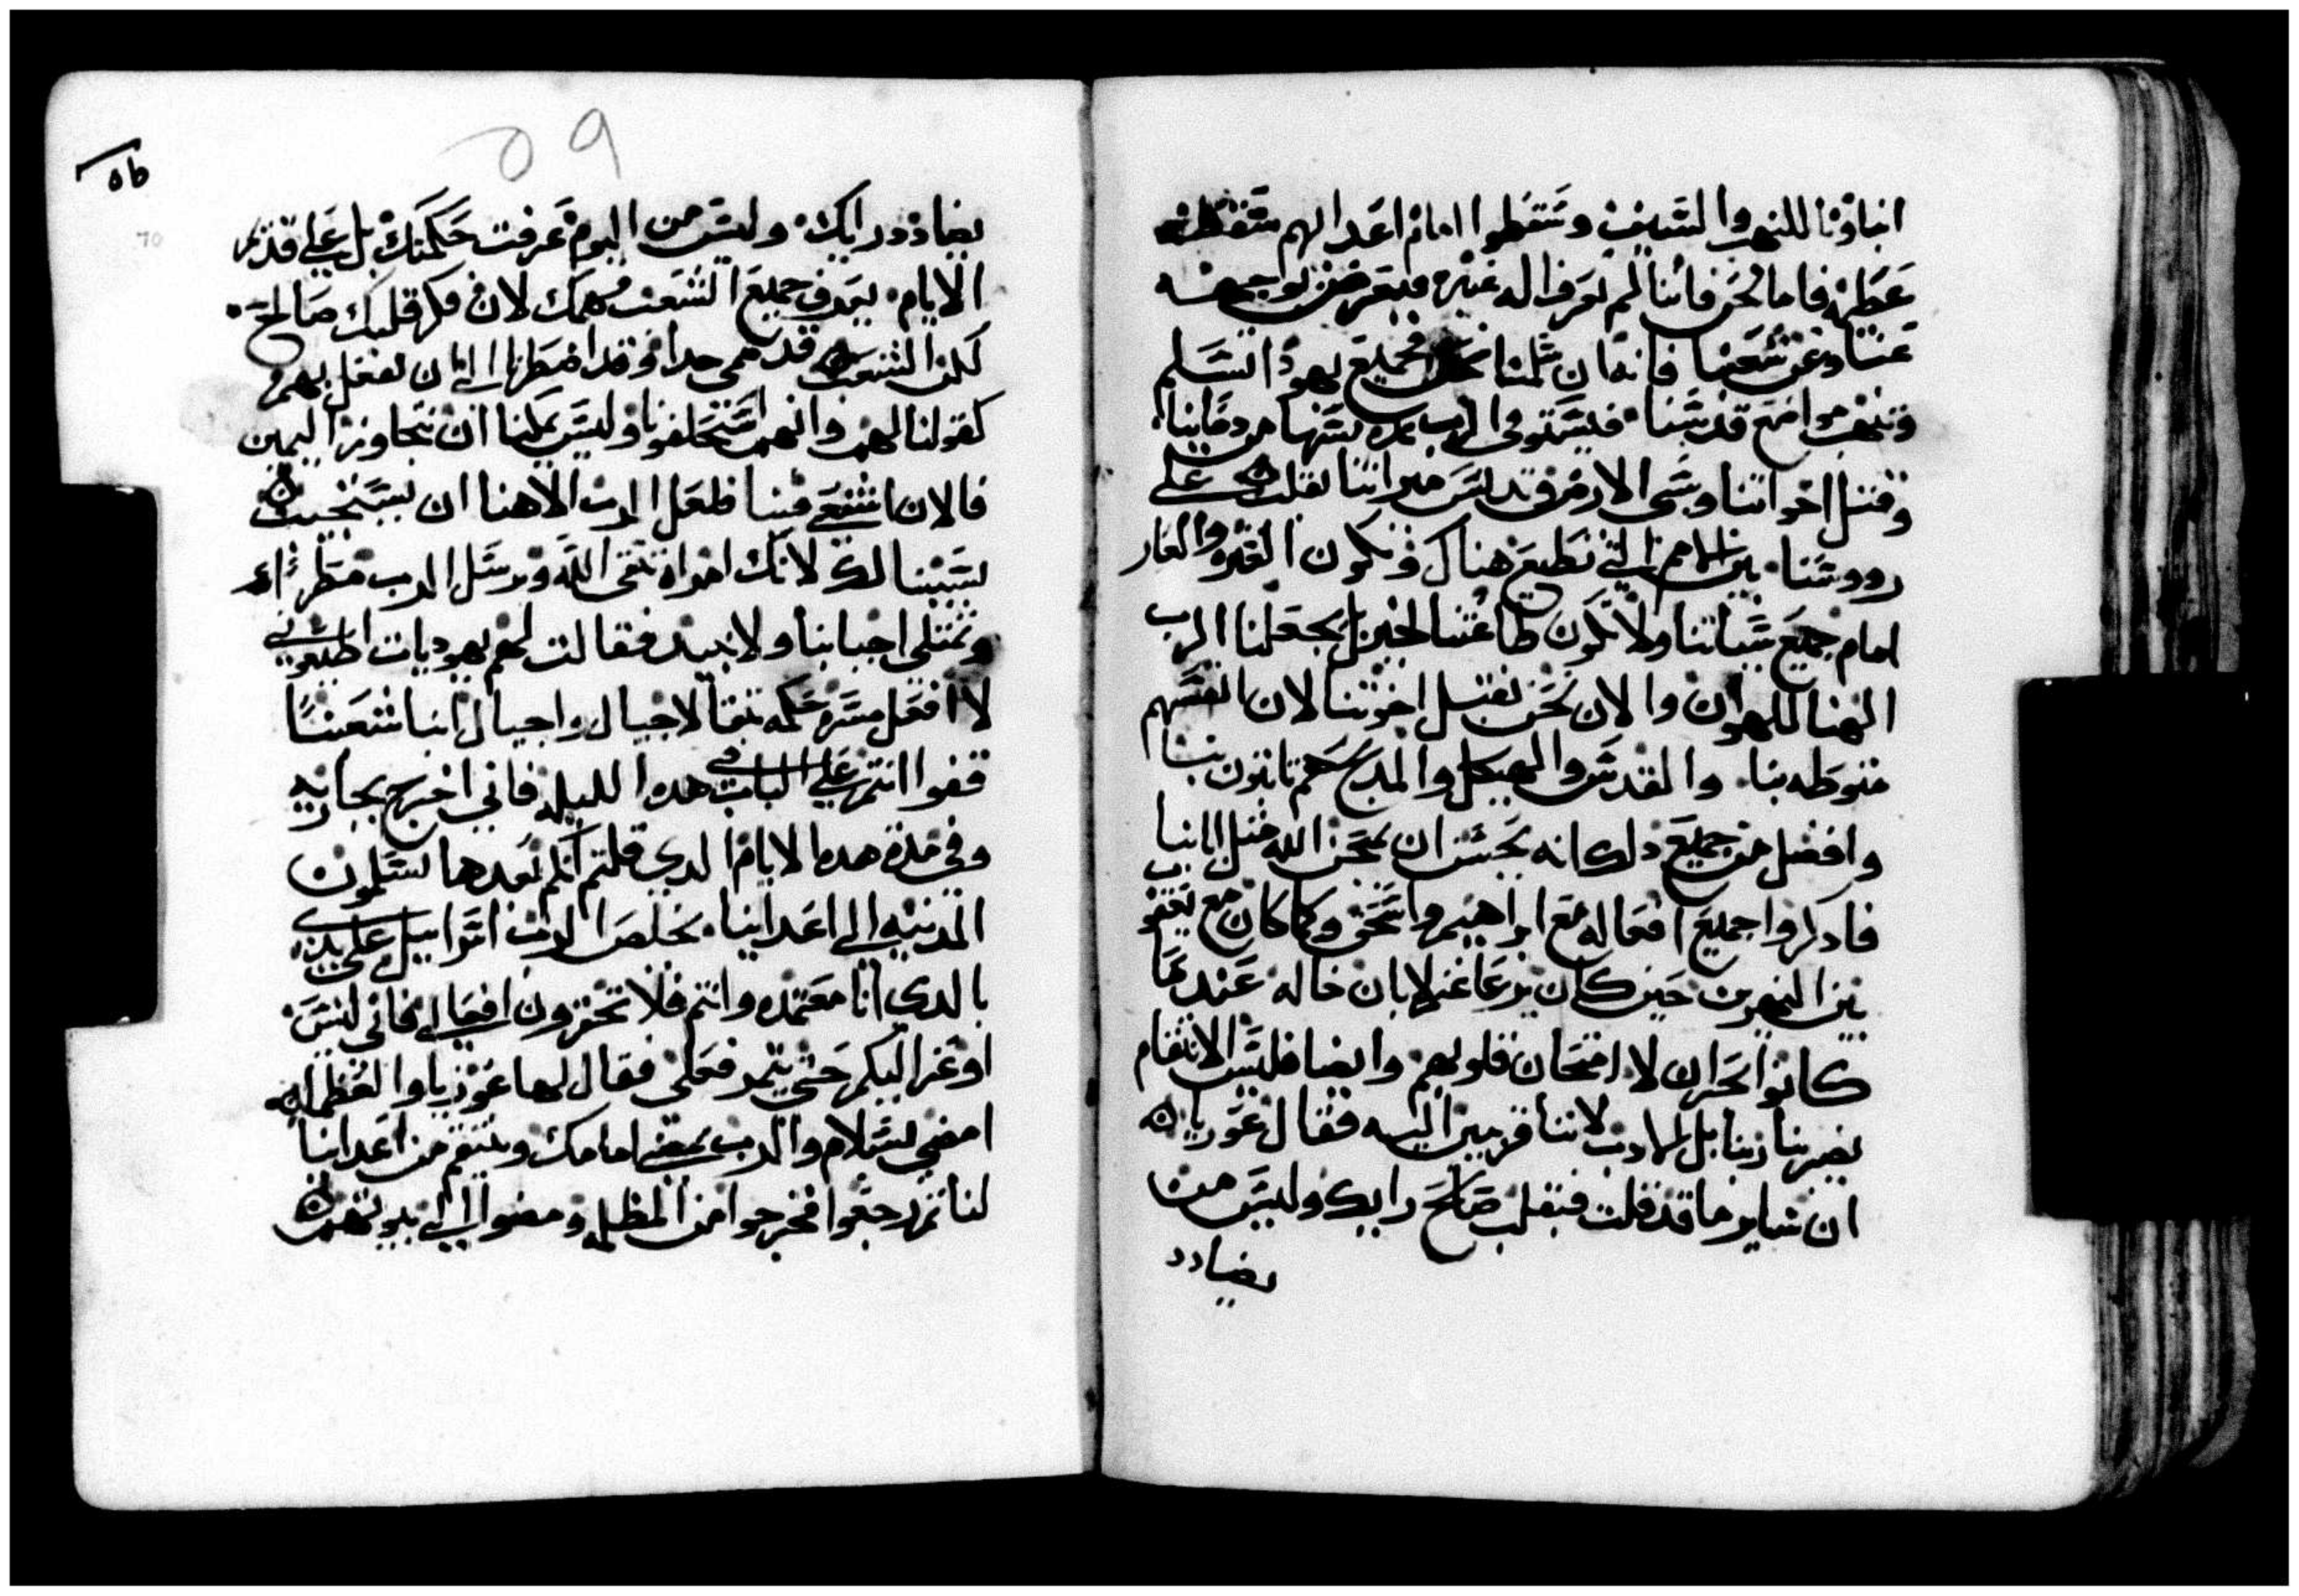 اباونا للنهب والسيف وسقطوا امام اعدايهم سقطه
عظيمه فاما نحن فاننا لم نعرف اله غيره فيعرض بوجهه
عنا وعن شعبنا فانه ان سلمنا نحن فجميع يهودا تسلم
وتنهب مواضع قدسنا فيستوفي الرب نجستها من دماينا
وقتل اخواتنا وسبي الارض وقدس ميراتنا يقلب على
رووسنا بين الامم التي نطيع هناك ونكون العتره والعار
امام جميع سباتنا ولا تكون طاعتنا لخير بل يجعلنا الرب
الهنا للهوان والان نحن نقتل اخوتنا لان انفسهم
منوطه بنا والقدس والهيكل والمدبح هم تابتون بنا
وافضل من جميع دلك انه يجب ان يمتحن الله مثل ابانيا
فادكروا جميع افعاله مع ابراهيم واسحق وكما كان مع يعقوب
بين النهرين حين كان يرعا غنم لابان خاله عندما
كانوا بحران لامتحان قلوبهم وايضا فليس الانتقام
يصيرنا زنبا بل لمادب لاننا قريبين اليه فقال عوريا
ان ساير ما قد قلت فبقلب صالح رايك وليس من
يضادد
٥٩
٥٦
70
يضادد رايك وليس من اليوم عرفت حكمتك بل على قدم
الايام يعرف جميع الشعب فهمك لان فكر قلبك صالح
لكن الشعب قد حمي جدا وقد اضطرنا الى ان نفعل بهم
كقولنا لهم وانهم استحلفونا وليس يمكننا ان نتجاوز اليمين
فالان اشفعي فينا فلعل الرب الاهنا ان يستجيب
بسببنا لك لانك امراه تتقي الله ويرسل الرب مطر
وتمتلي اجبابنا ولا نبيد فقالت لهم يهوديات اطيعوني
لا افعل مسره حكمه تبقا لاجيال واجيال ابنا شعبنا
قفوا انتم على الباب في هده الليله فاني اخرج بجاريه
وفي مدة هده الايام الدي قلتم انكم بعدها تسلمون
المدينه الى اعداينا يخلص الرب اسراييل على يدي
بالدي انا معتمده وانتم فلا تختبرون افعالي فاني ليس
اوعز اليكم حتى يتم فعلي فقال لها عوزيا والعظما
امضي بسلام والرب يمضي امامك وينتقم من اعداينا
لنا ثم رجعوا فخرجوا من المظله ومضوا الى بيوتهم